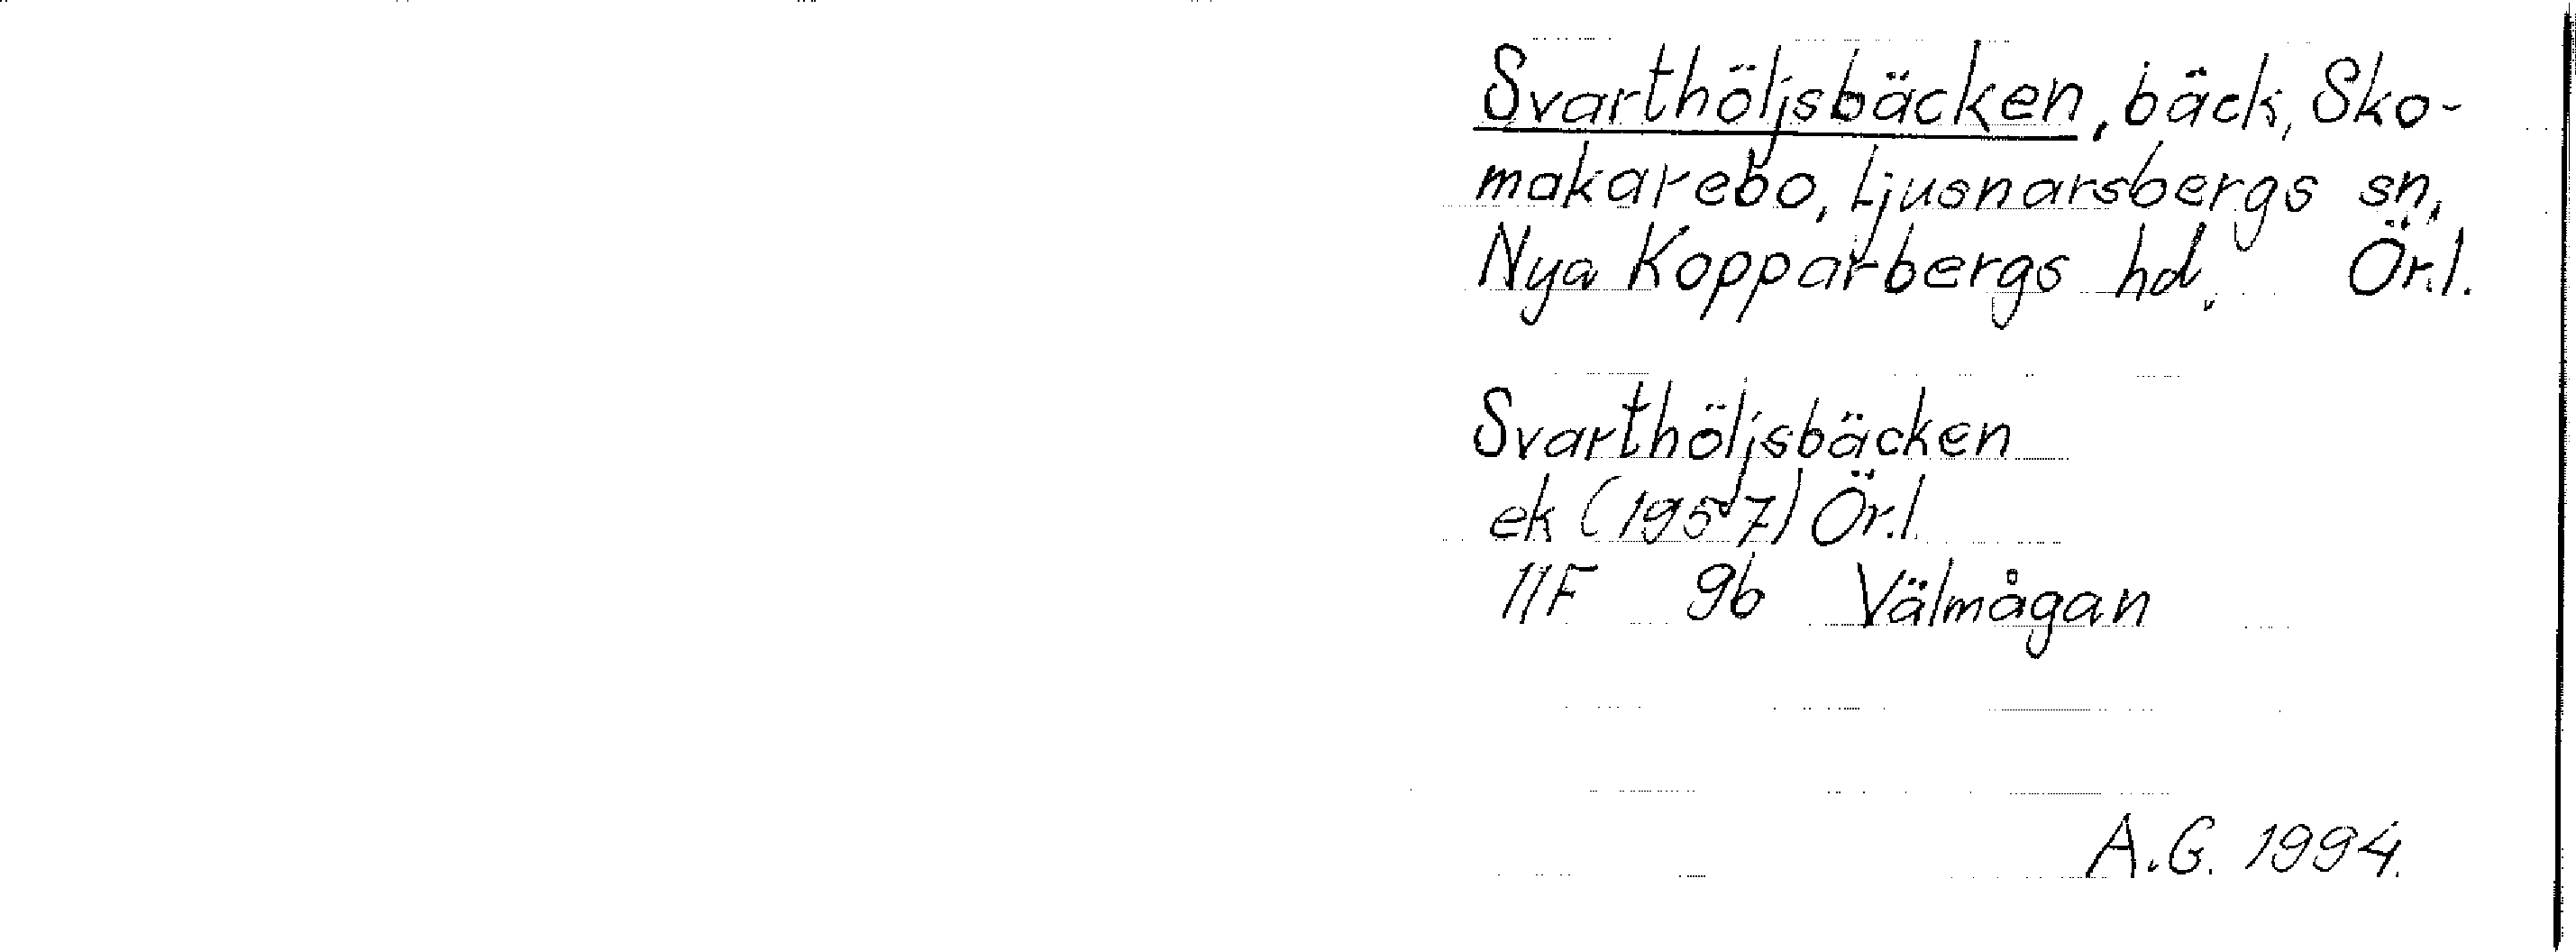 Svarthöljsbäcken, bäck, Sko-
makarebo, Ljusnarsbergs sn,
Nya Kopparbergs hd. Ör.l.
Svarthöljsbäcken
ek (1957) Ör.l.
11F 9b Välmågan
A.G. 1994.